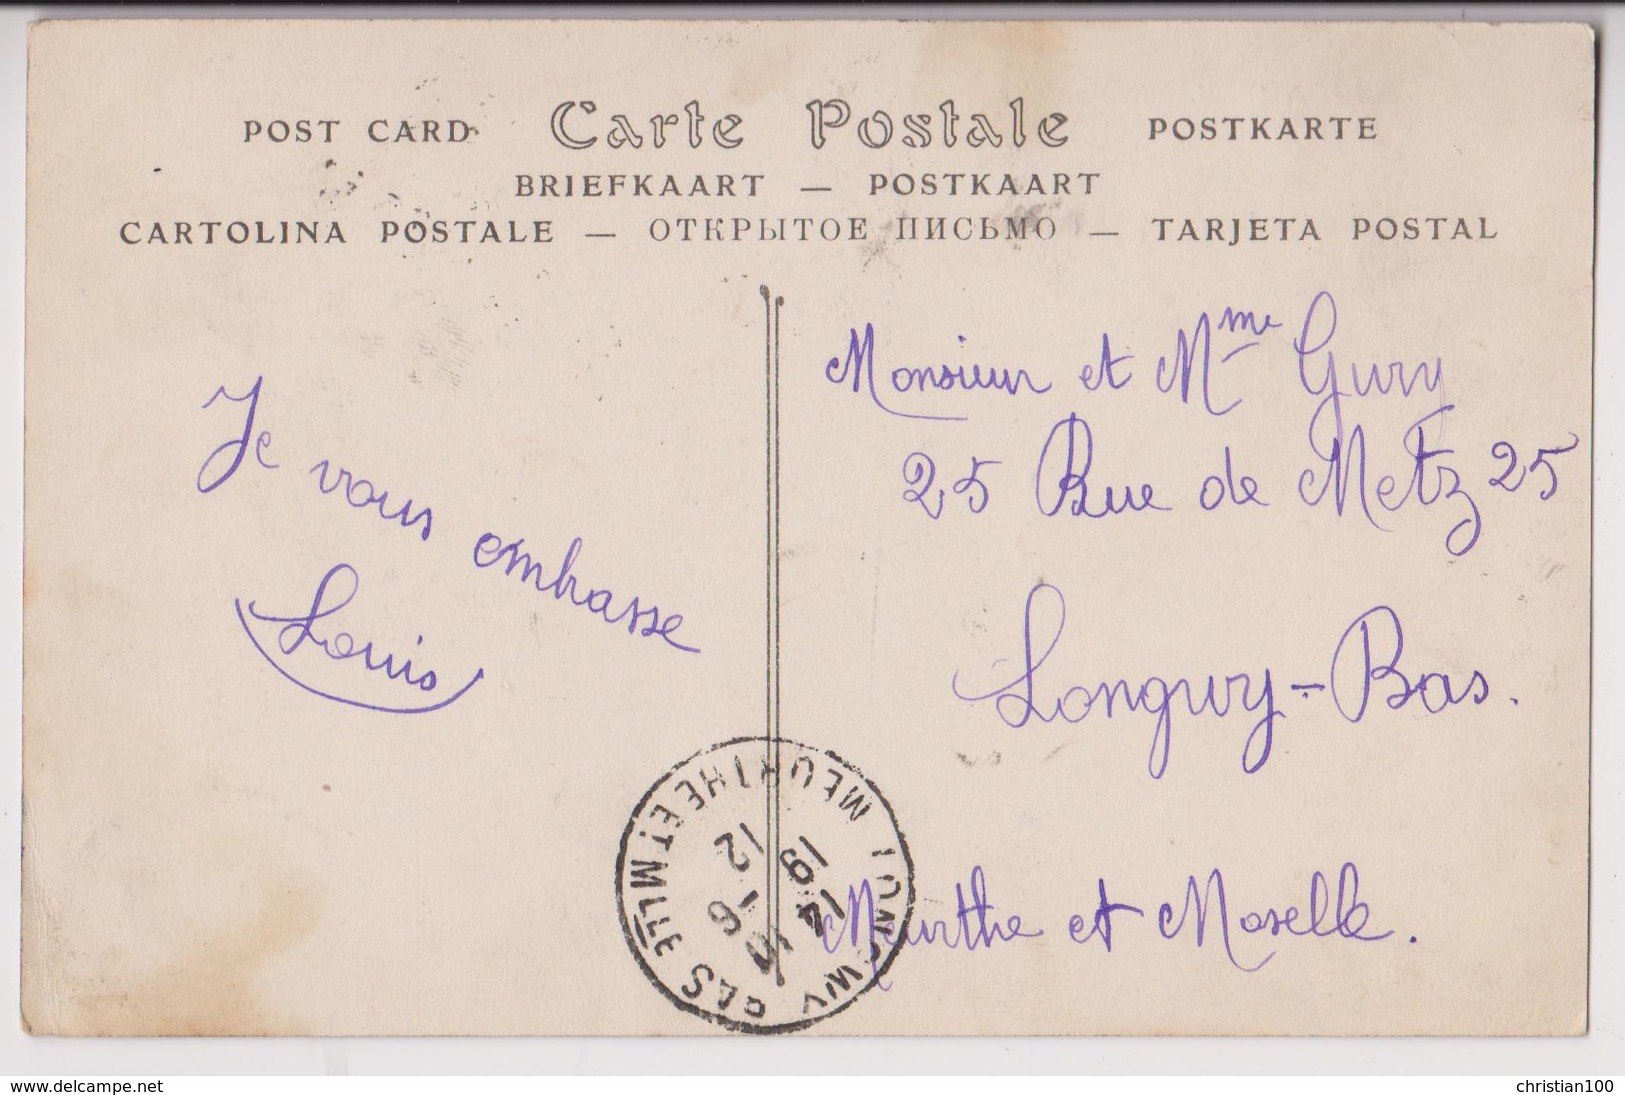 POST CARD Carte Postale POSTKARTE
BRIEFKAART — POSTKAART
CARTOLINA POSTALE — ОТКРЫТОЕ ПИСЬМО — TARJETA POSTAL
Je vous embrasse
Louis
Monsieur et Mme Gury
25 Rue de Metz 25
Longwy-Bas.
Meurthe et Moselle.
LONGWY BAS
MEURTHE ET MLLE
12
19
14
www.delcampe.net
christian100